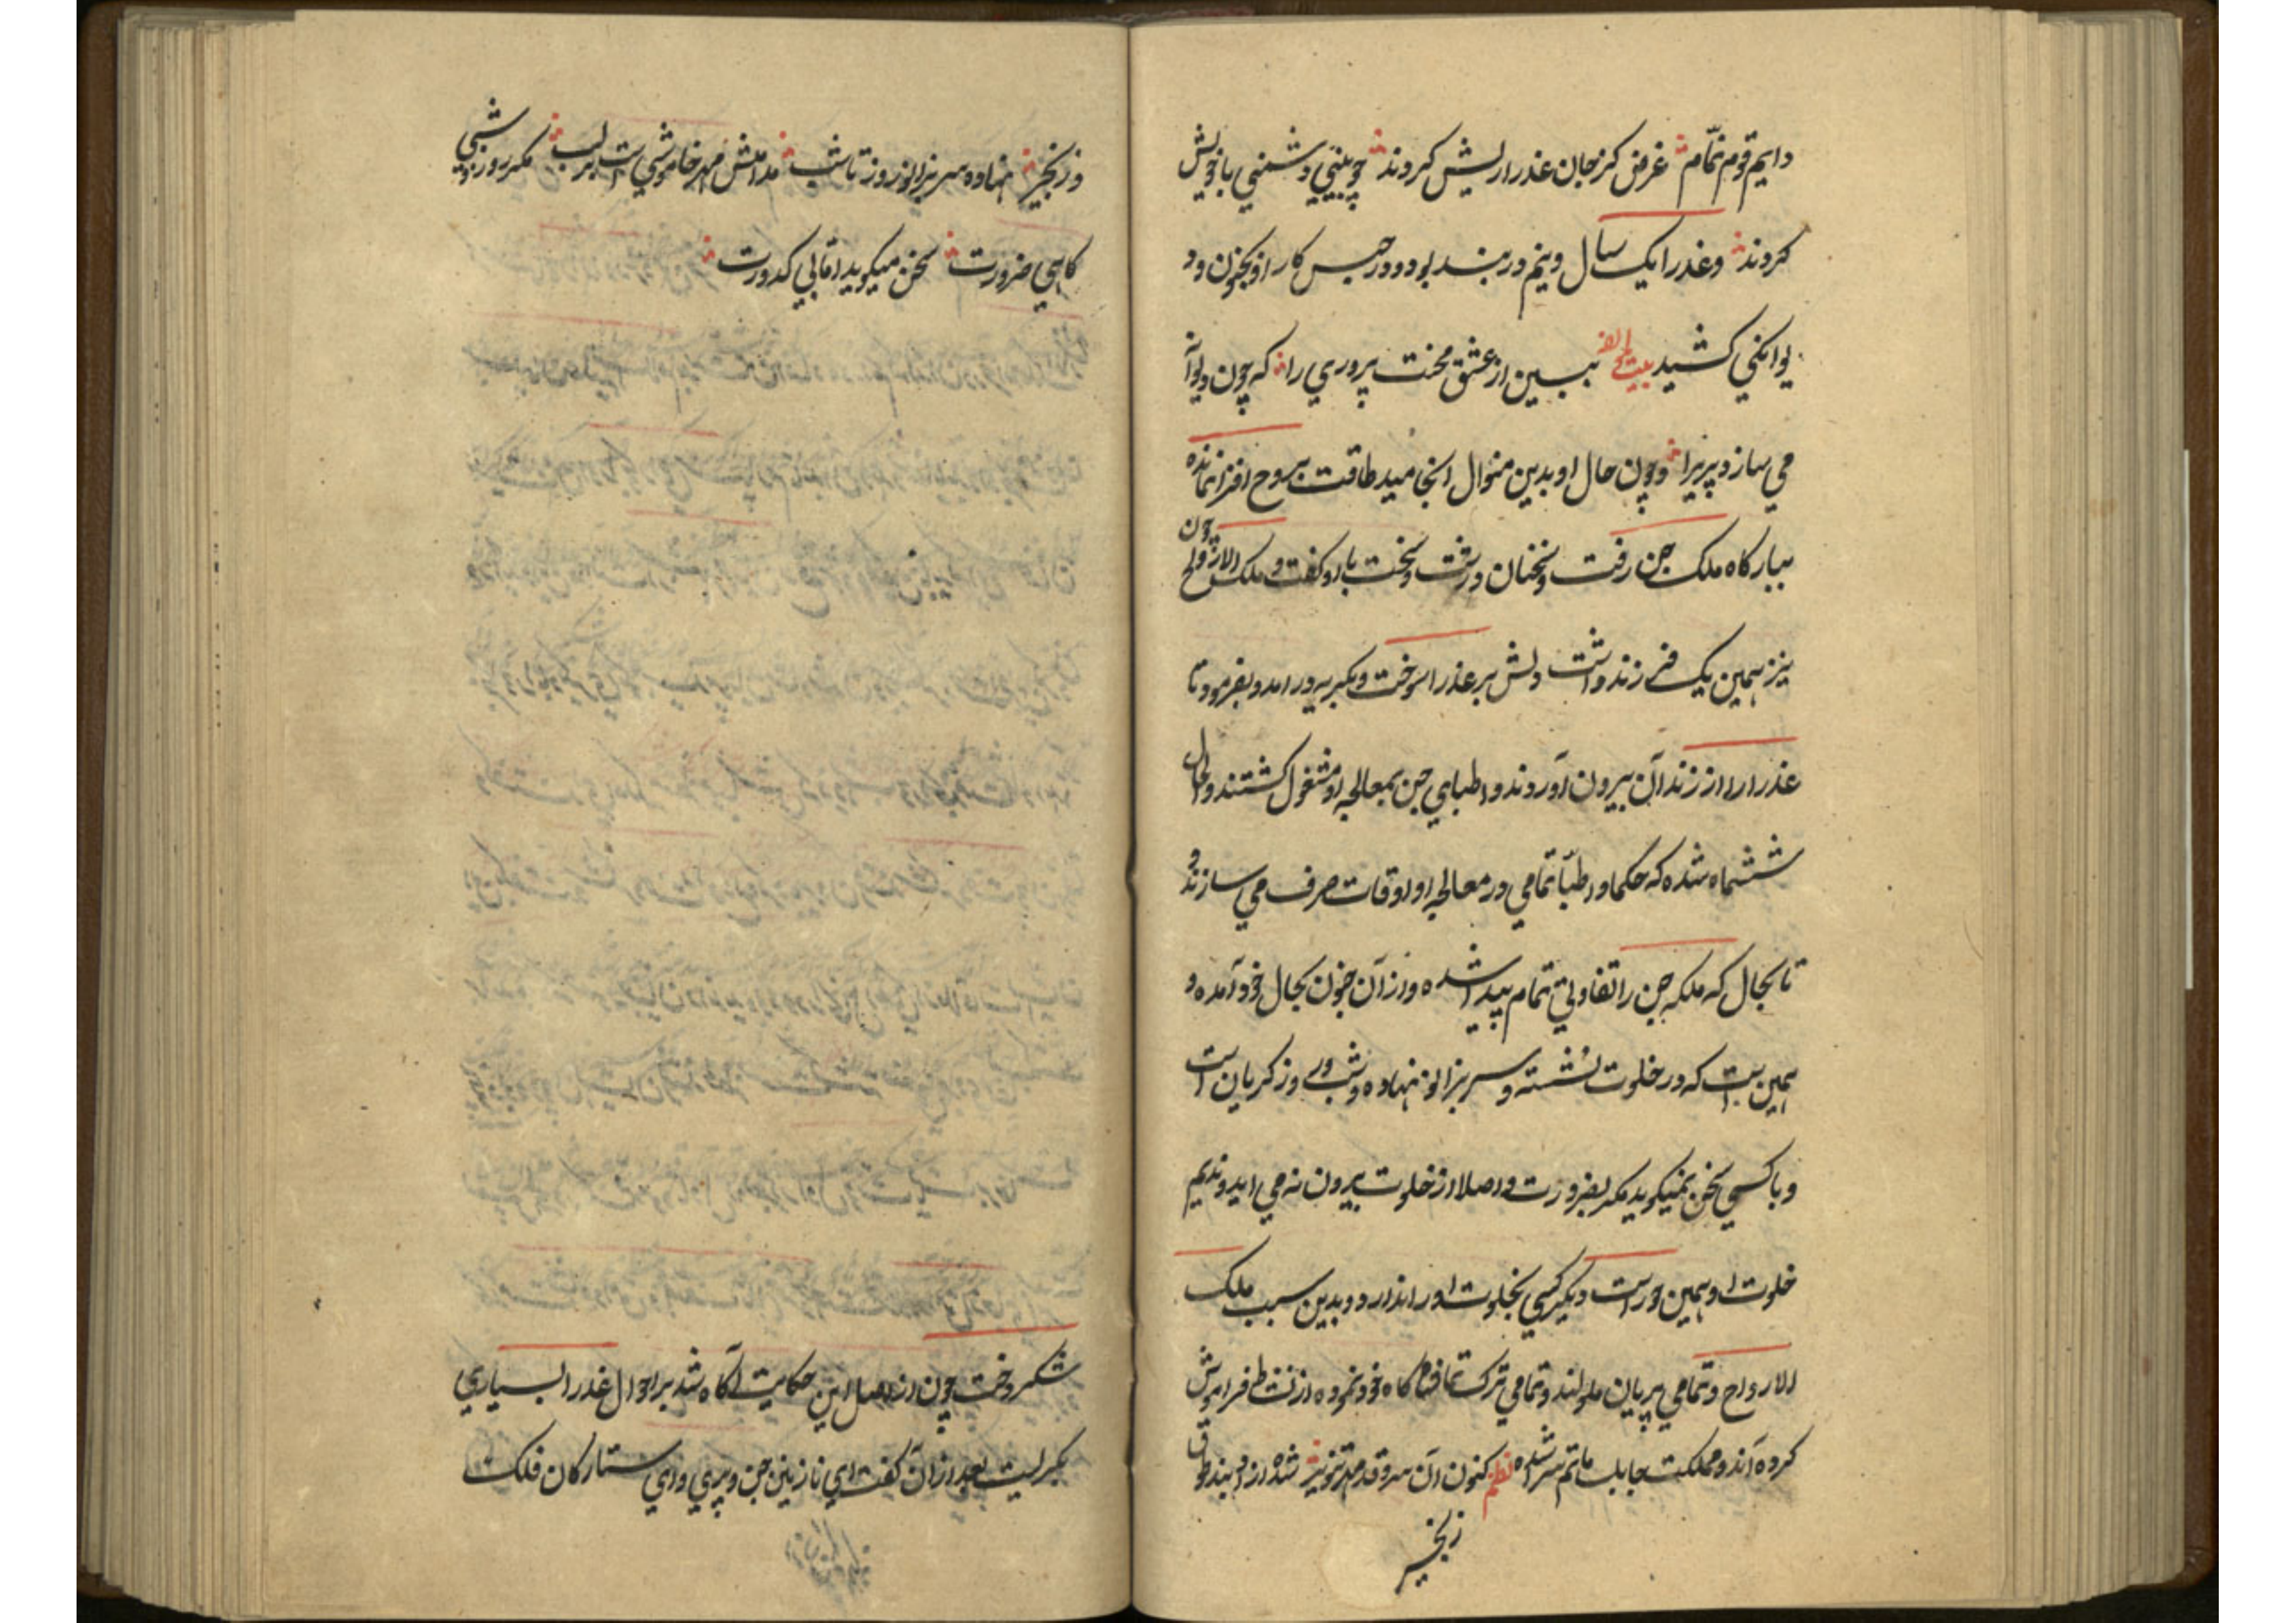 دایم قوم نمّام غرض کز جان عذرا ریش کردند چو بینی دشمنی با خویش
کردند وعذرا یک سال ونیم در بند بود ودر حبس کار او بجنون ود
یوانکی کشید بیت ببین از عشق محنت پروری را که چون دیوآ
می سازد پریرا وچون حال او بدین منوال انجامید طاقت بروح افزا نمانده
ببارکاه ملک جن رفت وسخنان درشت وسخت باو کفت و ملک الارواح چون
نیز همین یک فرزند داشت دلش بر عذرا سوخت وبکریه در امد وبفرمود تا
عذرا را از زندان بیرون آوردند واطبای جن بمعالجه او مشغول کشتند والحال
ششماه شده که حکما واطبّا تمامی در معالجه او اوقات صرف می سازند و
تا بحال که ملکه جن را تفاوتی تمام پیدا شده واز آن جنون بحال خود آمده و
همین است که در خلوت نشسته و سر بزانو نهاده وشب و روز کریان است
وبا کسی سخن نمیکوید مکر بضرورت واصلا از خلوت بیرون نه می اید وندیم
خلوت او همین حور است دیکر کسی بخلوت او راه ندارد وبدین سبب ملک
الارواح وتمامی پریان ملولند وتمامی ترک تماشا کاه خود نموده از نشاط فراموش
کرده آند ومملکت جابلسا ماتم سرا شده نظم کنون آن سرو قد شده از بند طوق
زنجیر
وزنجیر نهاده سر بزانو روز تا شب مدامش مهر خاموشی است بر لب مکر روزی شبی
کاهی ضرورت سخن میکوید اما بی کدورت
شکردخت چون از اصل این حکایت آکاه شد بر احوال عذرا بسیاری
بکریست بعد از آن کفت ای نازنین جن و پری وای ستارکان فلک